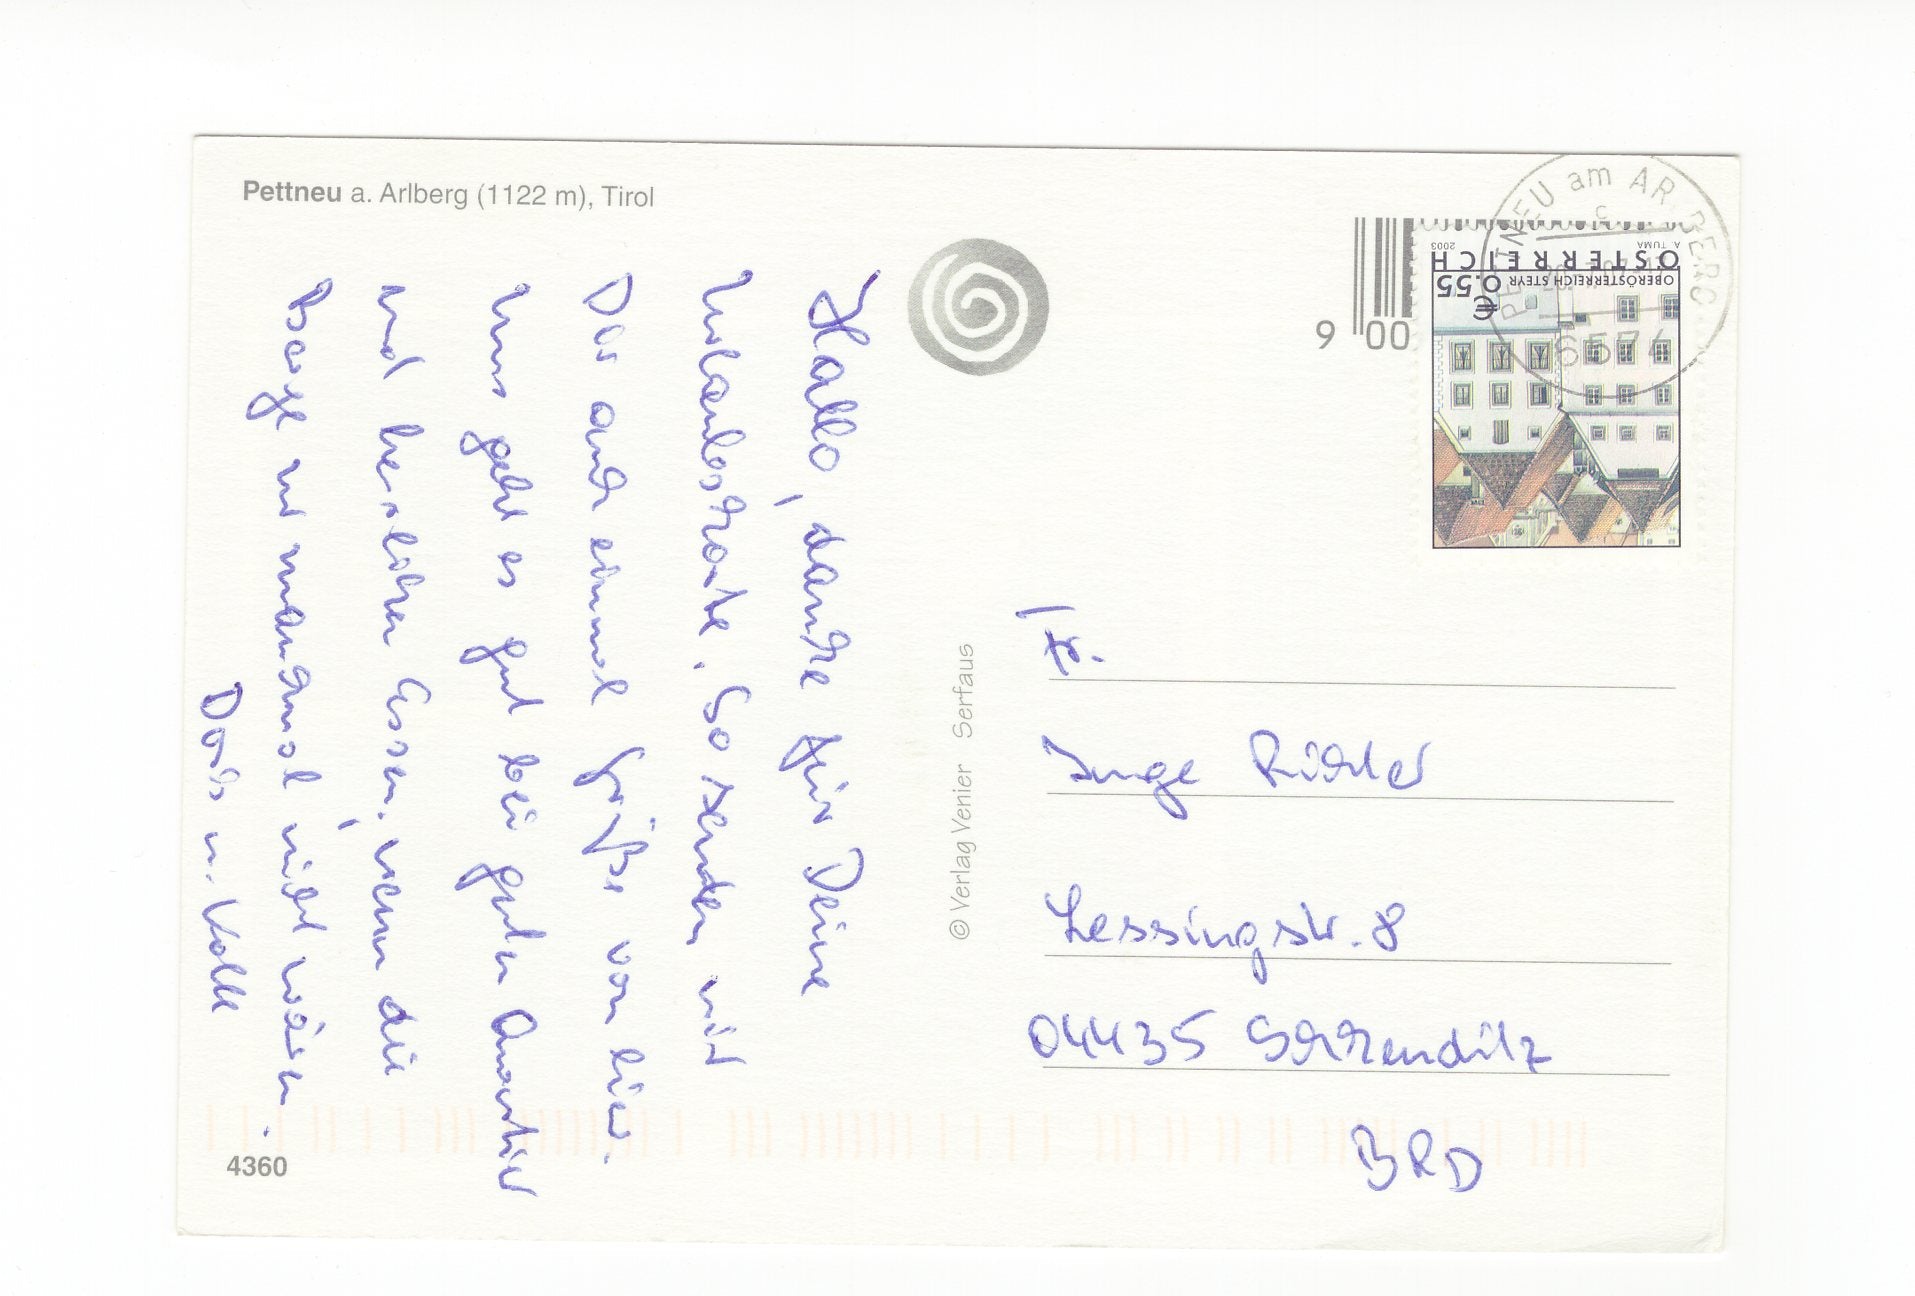 Pettneu a. Arlberg (1122 m), Tirol
Hallo, danke für Deine
Urlaubskarte. So senden wir
Dir auch einmal Grüße von hier.
Uns geht es gut bei guter Quartier
und herrlichen Essen, wenn die
Berge nur manchmal nicht wären.
Doris u.
4360
© Verlag Venier Serfaus
9 00
PETTNEU am ARLBERG
c
6574
A. TUMA 2003
ÖSTERREICH
OBERÖSTERREICH STEYR
€ 0,55
Fr.
Inge Richter
Lessingstr. 8
04435 Schkeuditz
BRD